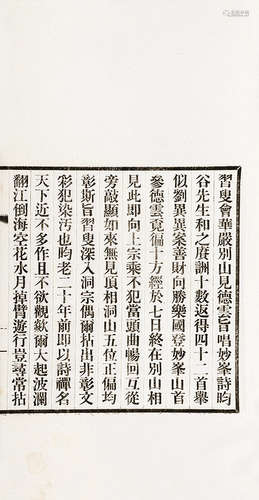 習叟會華嚴別山見德雲旨唱妙峯詩昀
谷先生和之賡詶十數返得四十二首舉
似劉異異案善財向勝樂國登妙峯山首
參德雲竟徧十方經於七日終在別山相
見此即向上宗乘不犯當頭曲暢回互從
旁敲顯如來無見頂相洞山五位正偏均
彰斯旨習叟深入洞宗偶爾拈出非彰文
彩犯染污也昀老二十年前即以詩禪名
天下近不多作且不欲觀歔爾大起波瀾
翻江倒海空花水月掉臂遊行豈尋常拈